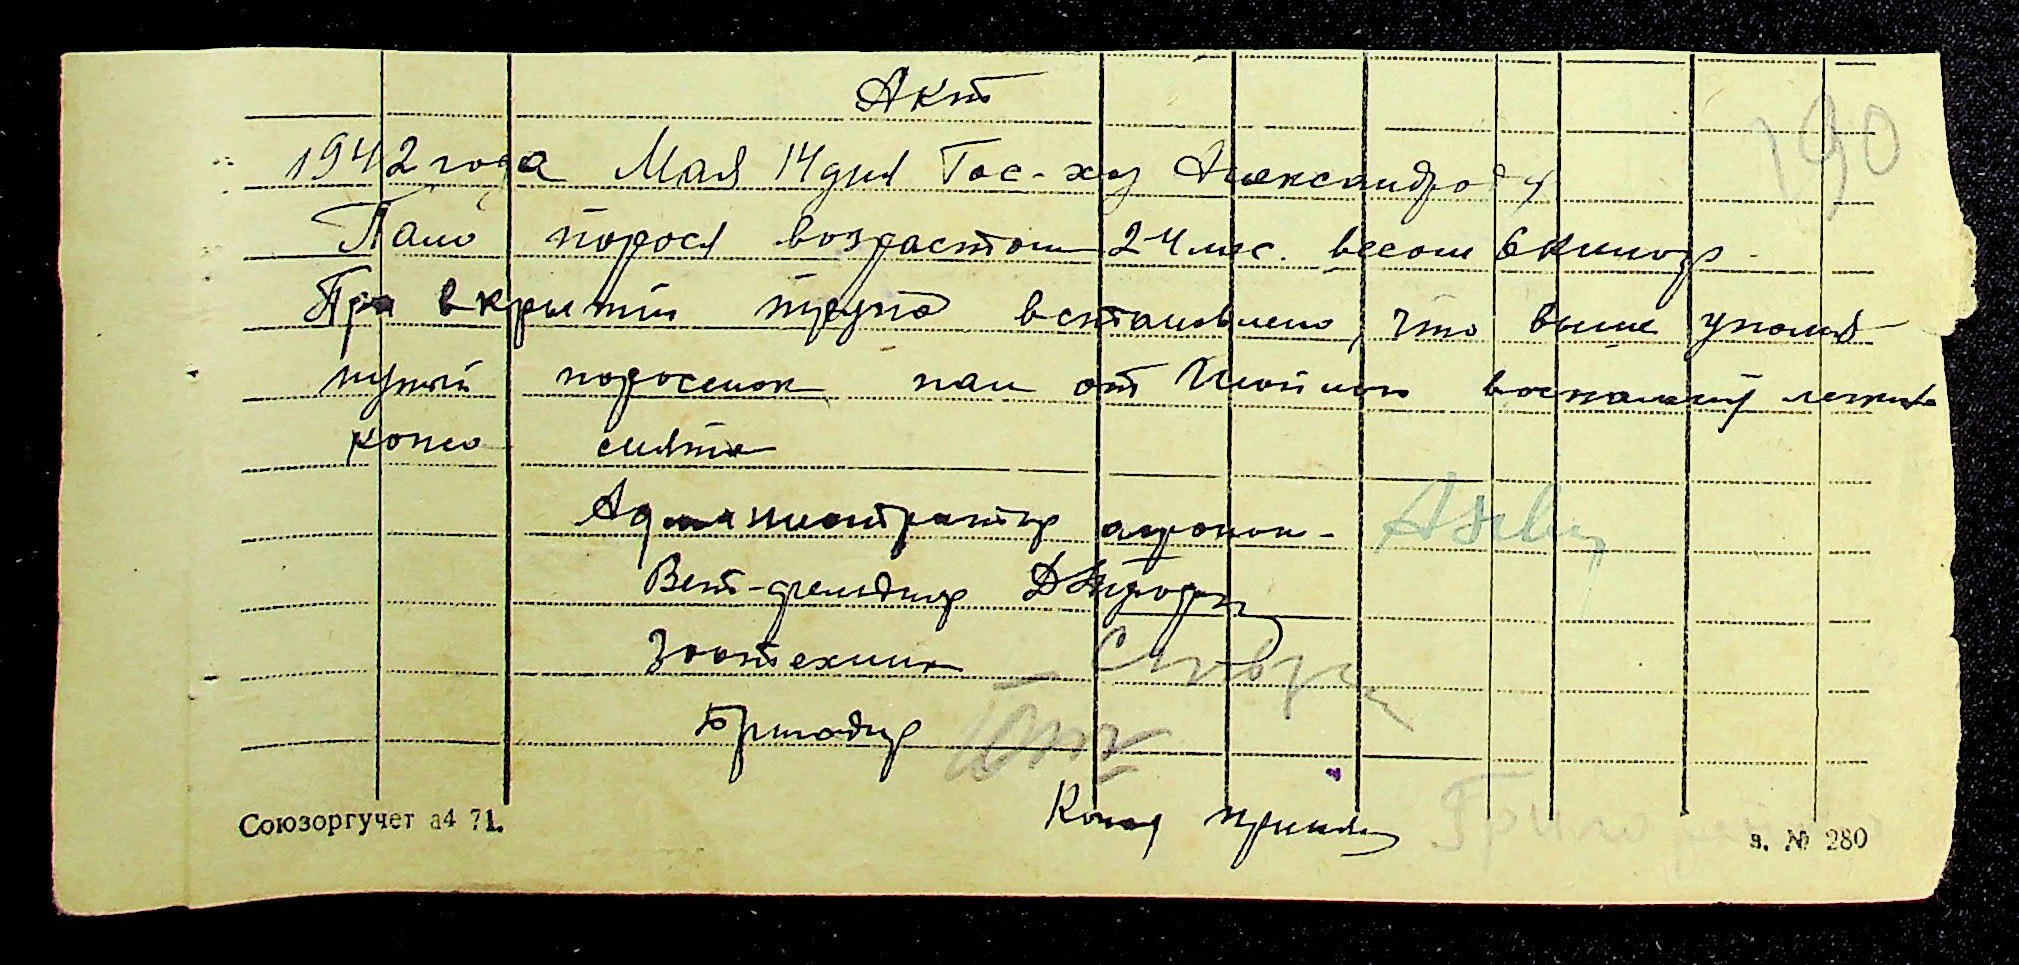 Акт
190
1942 года Мая 14 дня Гос-хоз Александровку
Пало порося возрастом 2 ч мес. весом 6 килогр.
При вкрытии трупа встановлено, что выше упомя
нутый поросенок пал от Гнойного воспаления легких
кожа снята
Администратор агроном-
Вет-фельдшер
Зоотехник
Бригадир
Кожу принял Григоренко
Союзоргучет а4 71.
з. № 280